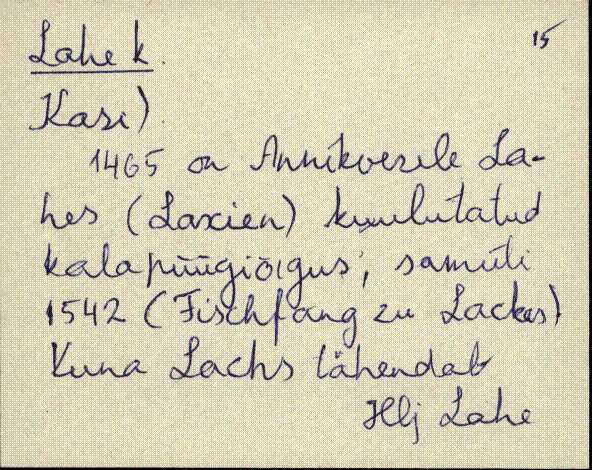 15
Lahe k.
Kasi).
1465 on Annikverele La-
hes (Laxien) kuulutatud
kalapüügiõigus, samuti
1542 (Fischfang zu Lackes)
Kuna Lachs tähendab
Hlj Lahe